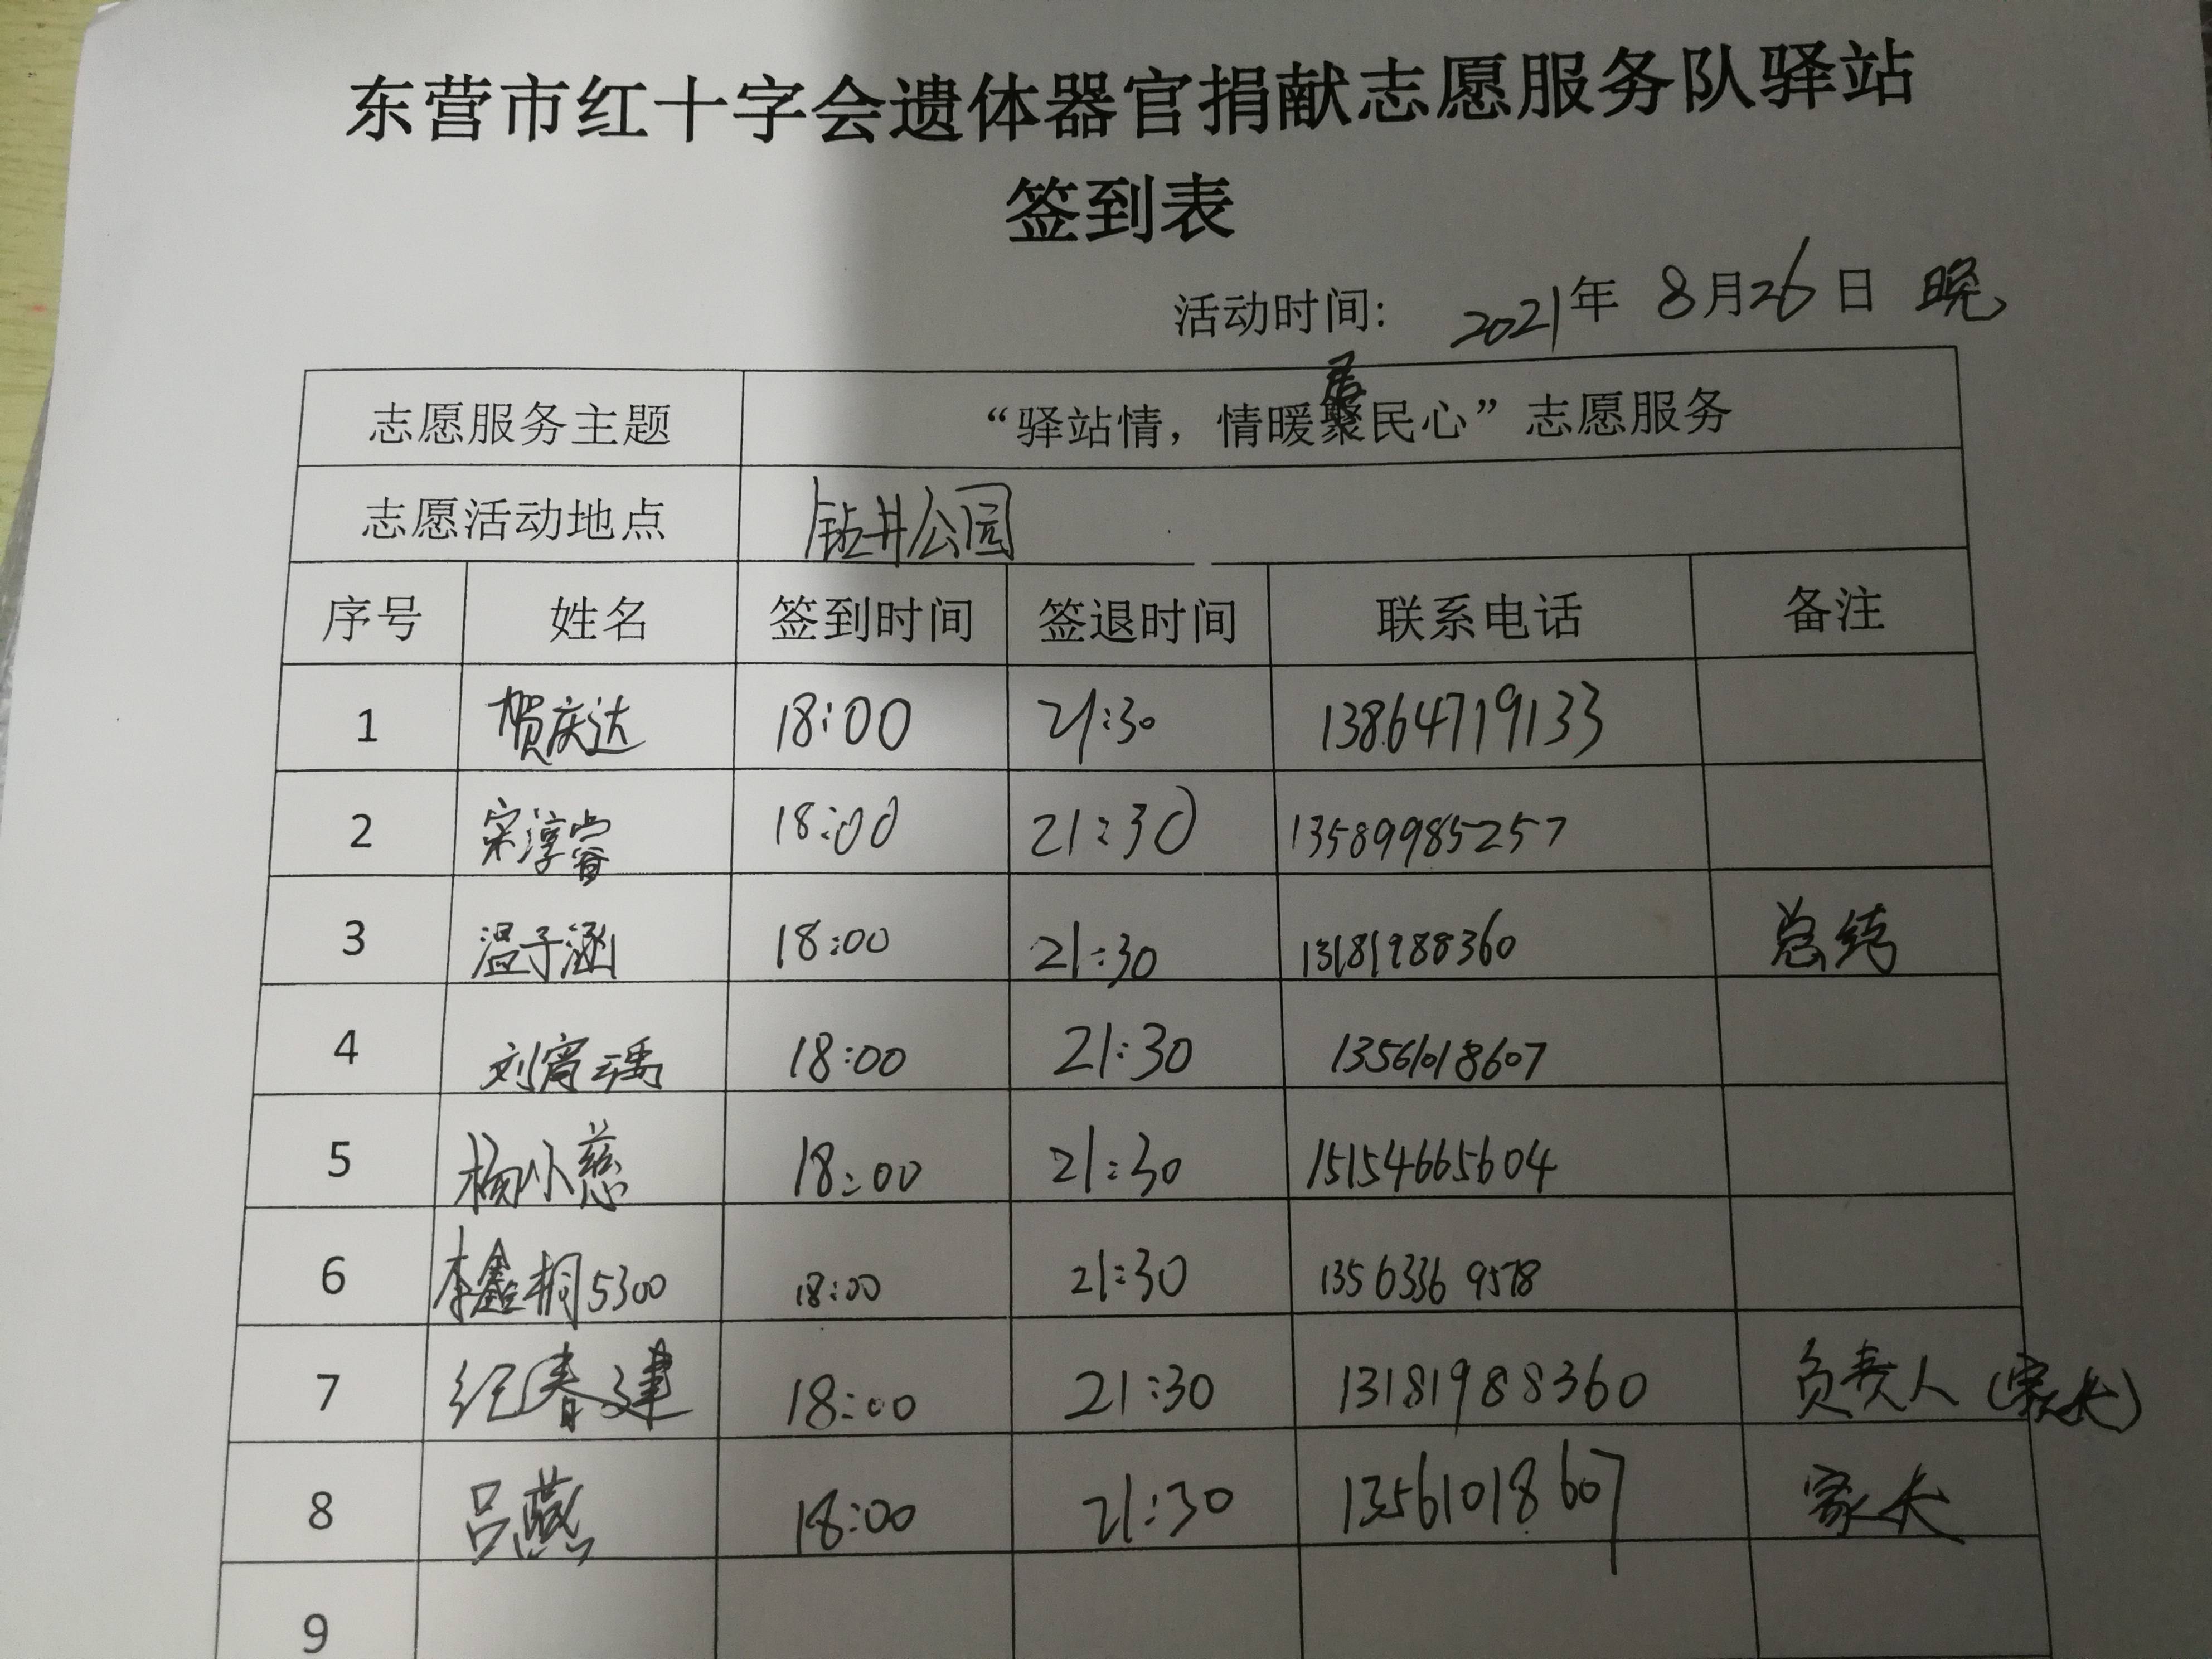 东营市红十字会遗体器官捐献志愿服务队驿站
签到表
活动时间: 2021年 8月26日 晚
志愿服务主题 “驿站情，情暖居民心”志愿服务
志愿活动地点 钻井公园
序号 姓名 签到时间 签退时间 联系电话 备注
1 贺庆达 18:00 21:30 13864719133
2 宋淳睿 18:00 21:30 13589985257
3 温子涵 18:00 21:30 13181988360 总结
4 刘宵瑀 18:00 21:30 13561018607
5 杨小慈 18:00 21:30 15154665604
6 李鑫桐5300 18:00 21:30 13563369578
7 纪春建 18:00 21:30 13181988360 负责人(家长)
8 吕燕 18:00 21:30 13561018607 家长
9